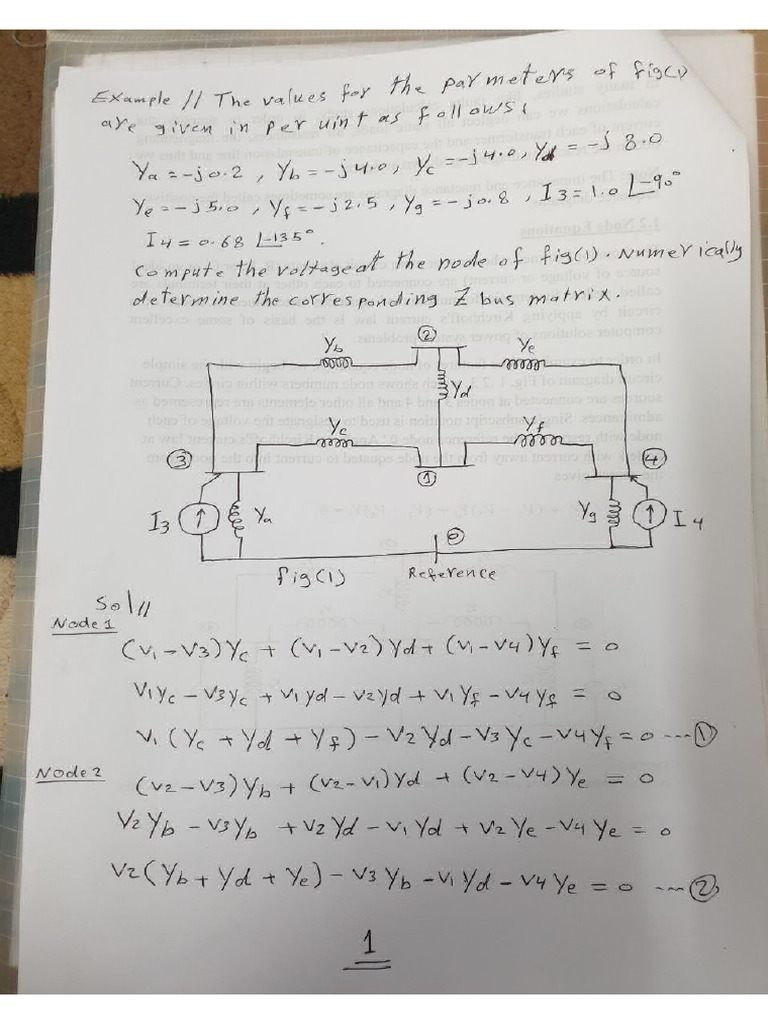 Example // The values for the parmeters of fig(1)
are given in per uint as follows:
Ya = -j0.2 , Yb = -j4.0, Yc = -j4.0, Yd = -j 8.0
Ye = -j5.0 , Yf = -j2.5 , Yg = -j0.8 , I3 = 1.0 ∠-90°
I4 = 0.68 ∠-135°.
Compute the voltage at the node of fig(1). Numerically
determine the corresponding Z bus matrix.
Yb ② Ye
Yd
Yc Yf
③ ① ④
I3 Ya Yg I4
⓪
fig(1) Reference
Sol//
Node 1
(V1 - V3)Yc + (V1 - V2)Yd + (V1 - V4)Yf = 0
V1Yc - V3Yc + V1Yd - V2Yd + V1Yf - V4Yf = 0
V1 (Yc + Yd + Yf) - V2Yd - V3Yc - V4Yf = 0 ---①
Node 2
(V2 - V3)Yb + (V2 - V1)Yd + (V2 - V4)Ye = 0
V2Yb - V3Yb + V2Yd - V1Yd + V2Ye - V4Ye = 0
V2(Yb + Yd + Ye) - V3Yb - V1Yd - V4Ye = 0 ---②
1